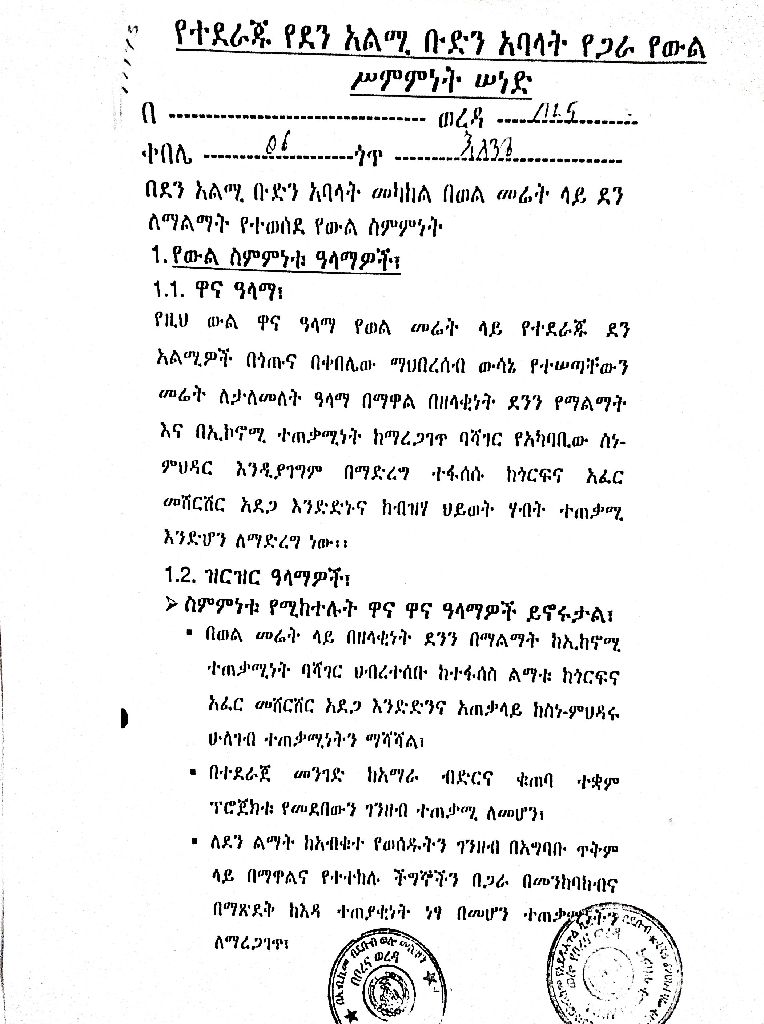 የተደራጁ የደን አልሚ ቡድን አባላት የጋራ የውል
ሥምምነት ሠነድ
በ ---------------------------------- ወረዳ -------------------
ቀበሌ -------------------- ጎጥ ------------------------------
በደን አልሚ ቡድን አባላት መካከል በወል መሬት ላይ ደን
ለማልማት የተወሰደ የውል ስምምነት
1. የውል ስምምነቱ ዓላማዎች፣
1.1. ዋና ዓላማ፣
የዚህ ውል ዋና ዓላማ የወል መሬት ላይ የተደራጁ ደን
አልሚዎች በጎጡና በቀበሌው ማህበረሰብ ውሳኔ የተሠጣቸውን
መሬት ለታለመለት ዓላማ በማዋል በዘላቂነት ደንን የማልማት
እና በኢኮኖሚ ተጠቃሚነት ከማረጋገጥ ባሻገር የአካባቢው ስነ-
ምህዳር እንዲያገግም በማድረግ ተፋሰሱ ከጎርፍና አፈር
መሸርሸር አደጋ እንድድኑና ከብዝሃ ህይወት ሃብት ተጠቃሚ
እንድሆን ለማድረግ ነው፡፡
1.2. ዝርዝር ዓላማዎች፣
➢ ስምምነቱ የሚከተሉት ዋና ዋና ዓላማዎች ይኖሩታል፣
▪ በወል መሬት ላይ በዘላቂነት ደንን በማልማት ከኢኮኖሚ
ተጠቃሚነት ባሻገር ህብረተሰቡ ከተፋሰስ ልማቱ ከጎርፍና
አፈር መሸርሸር አደጋ እንድድንና አጠቃላይ ከስነ-ምህዳሩ
ሁለገብ ተጠቃሚነትን ማሻሻል፣
▪ በተደራጀ መንገድ ከአማራ ብድርና ቁጠባ ተቋም
ፕሮጀክቱ የመደበውን ገንዘብ ተጠቃሚ ለመሆን፣
▪ ለደን ልማት ከአብቁተ የወሰዱትን ገንዘብ በአግባቡ ጥቅም
ላይ በማዋልና የተተከሉ ችግኞችን በጋራ በመንከባከብና
በማጽደቅ ከእዳ ተጠያቂነት ነፃ በመሆን ተጠቃሚነትን
ለማረጋገጥ፣